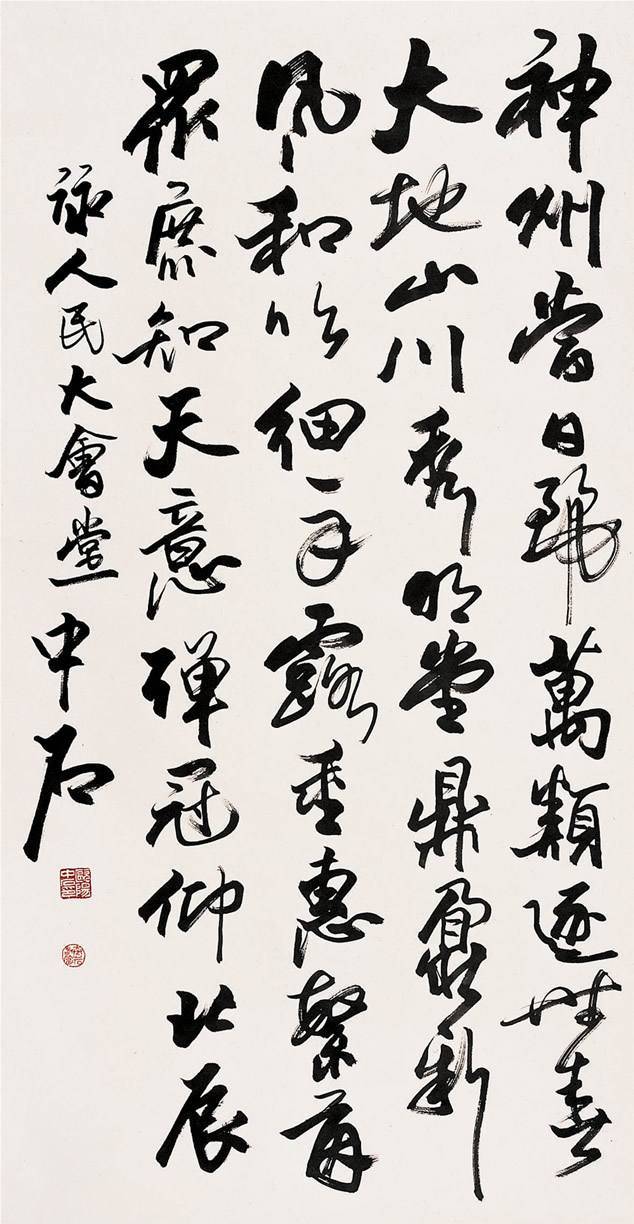 神州當日麗萬類逐時春
大地山川秀明堂鼎鼐新
風和吹細露垂惠繁
眾庶知天意彈冠仰北辰
詠人民大會堂中石
歐陽中石